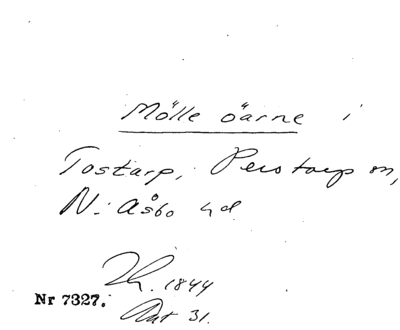 Mölle öarne i
Tostarp, Perstorp sn,
N. Åsbo hd
1844
Nr 7327.
Dat 31.